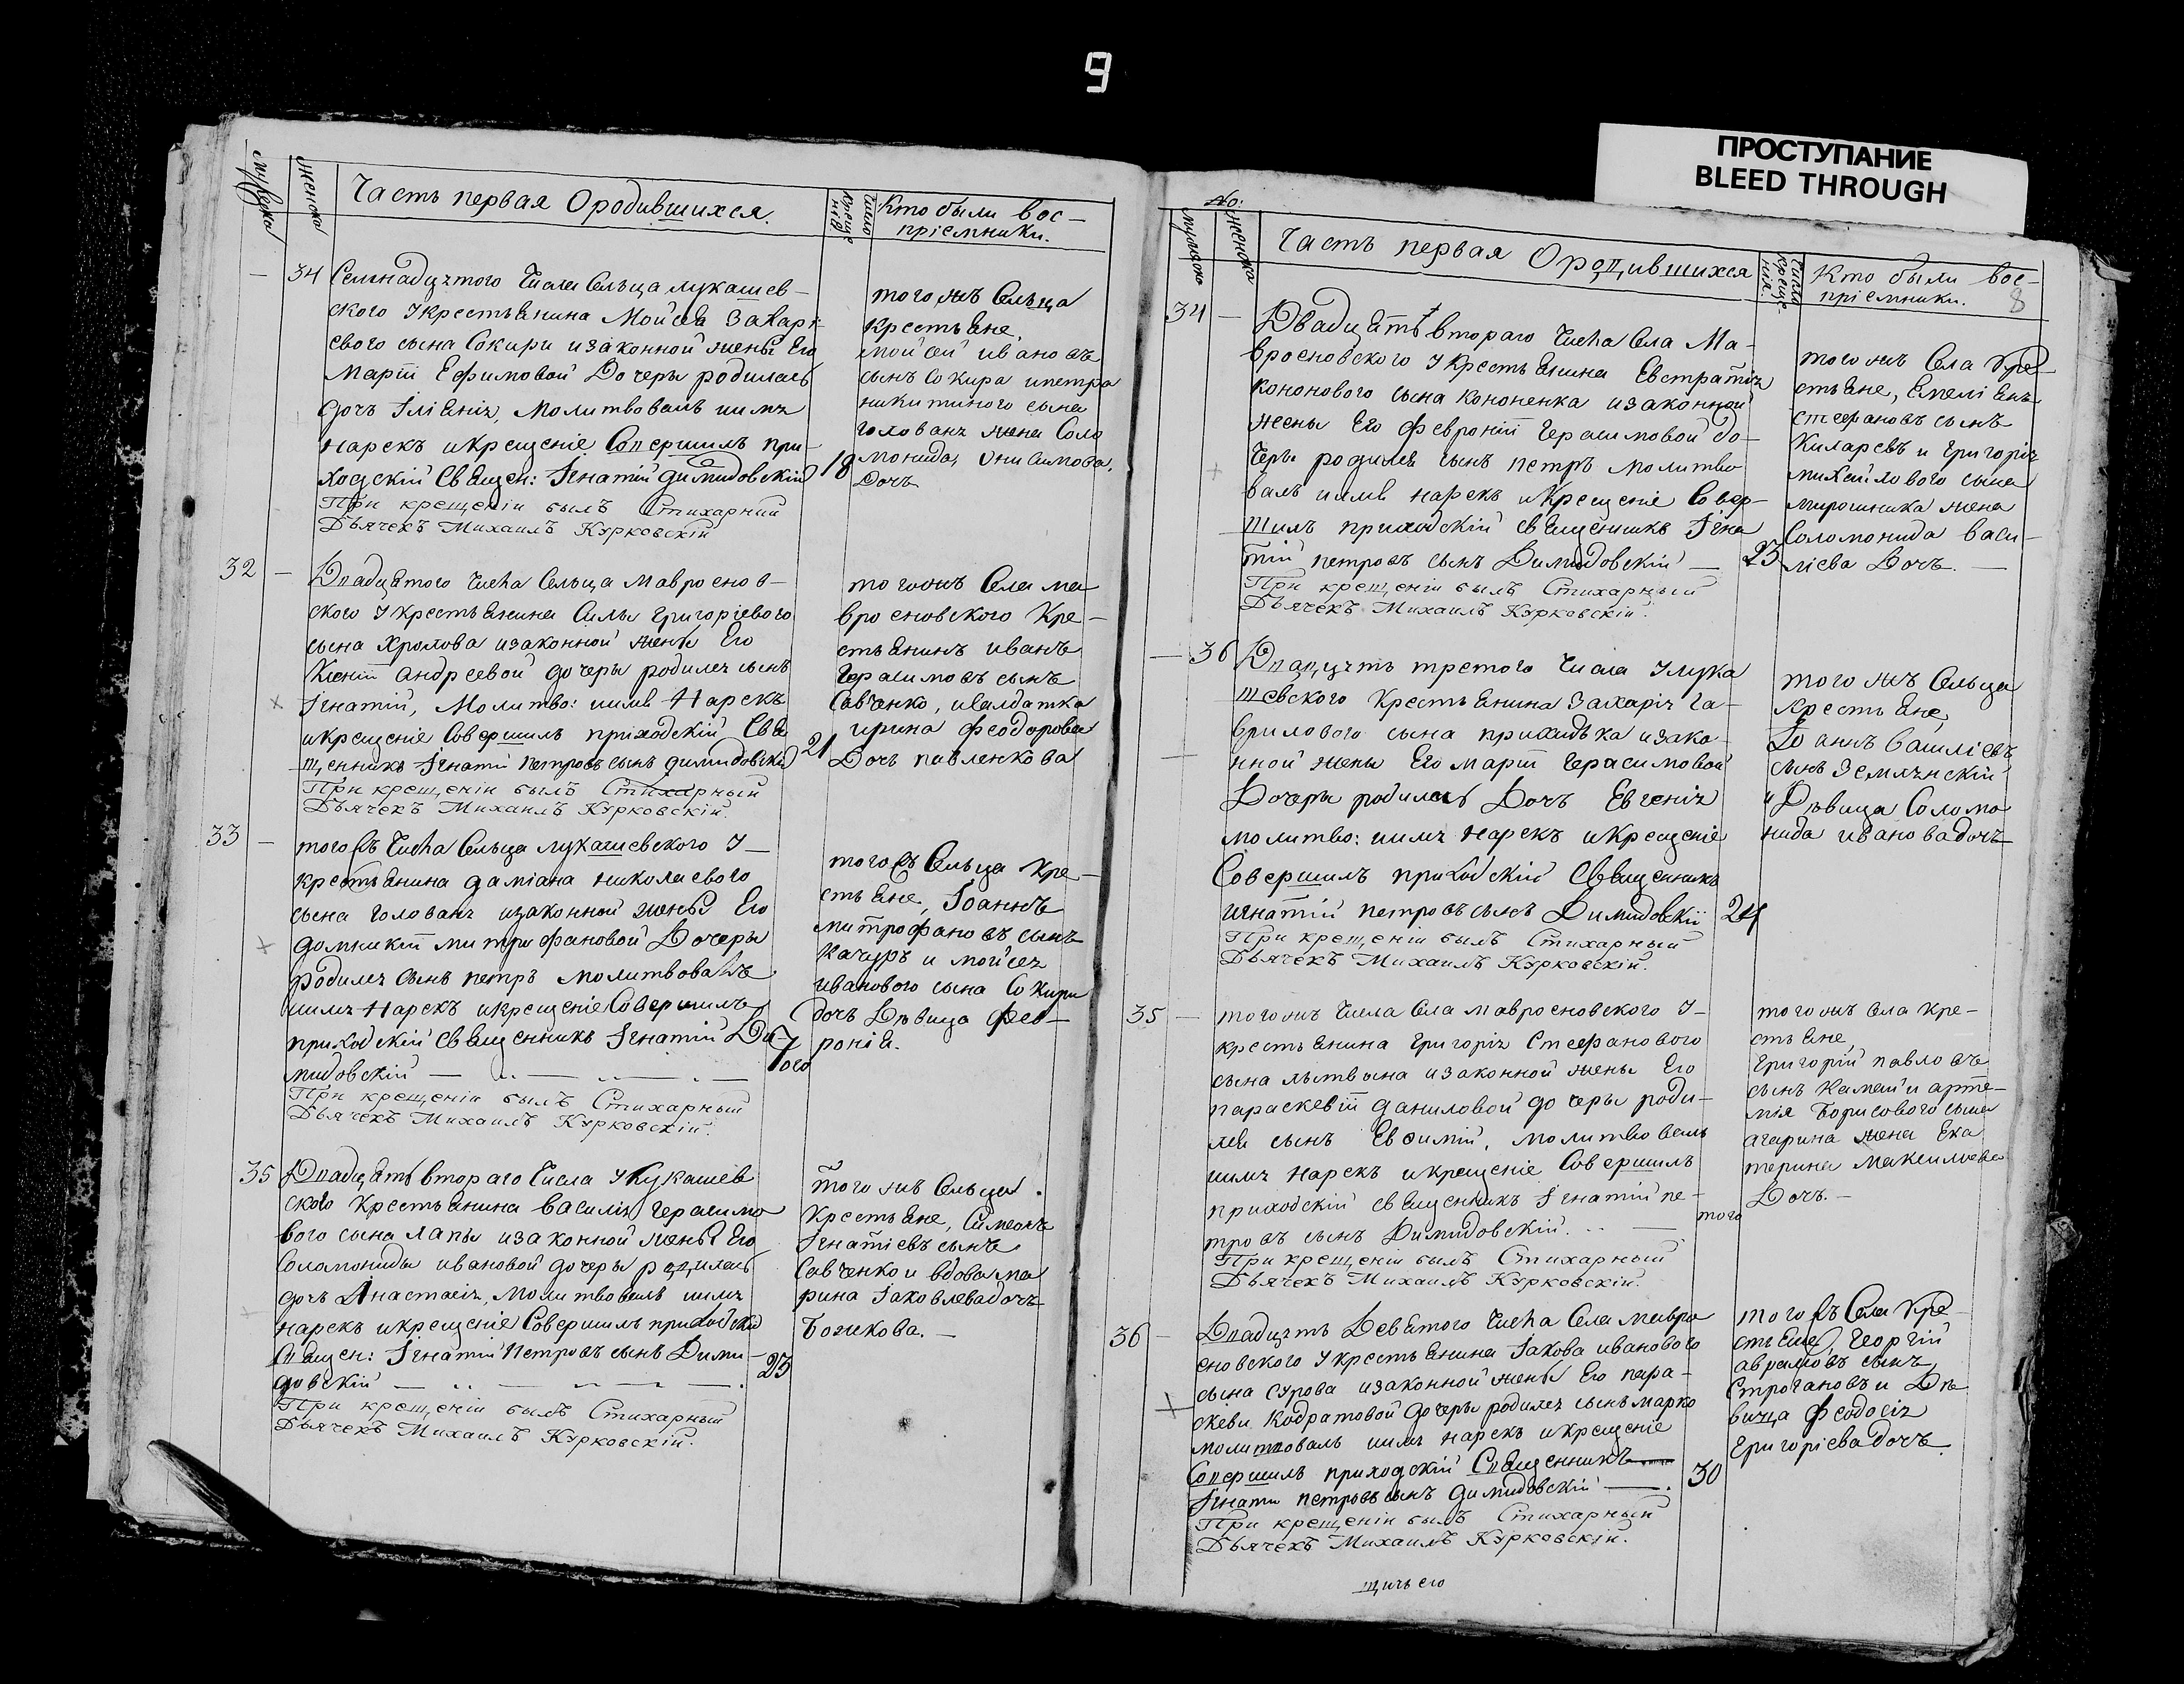 9
ПРОСТУПАНИЕ
BLEED THROUGH
мужеска
женска
Часть первая Ородившихся.
Число креще нія
Кто были вос-
пріемники.
34
ского укрестьянина Мойсея Захарі-
евого сына Сокири изаконной жены Его
Марѳіи Ефимовой Дочеры родилась
дочь молитвовалъ
нарекъ икрещеніе Совершилъ при-
ходскій Священ: Ігнатій Димидовскій
При крещеніи былъ Стихарний
Дьячекъ Михаилъ Курковскій
18
того жъ Сельца
крестьяне,
Мойсей ивановъ
сынъ Сокира ипетра
никитиного сына
голована жена Соло
монида, Онисимова.
Дочь
32
Двадцятого числа Сельца Мавросенов-
ского укрестьянина Силы Григоріевого
сына Хролова изаконной жены Его
Ксеніи андреевой дочеры родился сынъ
Ігнатій, Молитво: имя Нарекъ
икрещеніе Совершилъ приходскій Свя
щенникъ Ігнатій Петровъ сынъ димидовскій
При крещеніи былъ Стихарный
Дьячекъ Михаилъ Курковскій.
21
того жъ Села ма
вросеновского Кре-
стьянинъ иванъ
Герасимовъ сынъ
Савченко, исалдатка
ирина Феодорова
Дочь павленкова
33
того жъ Числа Сельца лукашевского у-
крестьянина даміана николаевого
сына голована изаконной жены Его
домникіи митрофановой Дочеры
родился сынъ петръ молитвовалъ
имя нарекъ икрещеніе Совершилъ
приходскій Священникъ Ігнатій Ди-
мидовскій
При крещеніи былъ Стихарный
Дьячекъ Михаилъ Курковскій.
того жъ Сельца кре-
стьяне, Іоаннъ
митрофановъ сынъ
Качуръ и мойсея
иванового сына Сокири
дочь Дѣвица Фев-
ронія.
35
Двадцять втораго Числа у лукашев
ского Крестьянина василія герасимо
вого сына лапы изаконной жены Его
Соломониды ивановой дочеры родилась
дочь Анастасія, молитвовалъ имя
нарекъ икрещеніе Совершилъ приходскій
Священ: Ігнатій Петровъ сынъ Дими-
довскій
При крещеніи былъ Стихарный
Дьячекъ Михаилъ Курковскій.
23
того жъ Сельца
Крестьяне, Симеонъ
Ігнатіевъ сынъ
Савченко и вдова ма
рина Іаковлева дочь
Божкова.
№:
мужеска
женска
Часть первая Ородившихся
Числа креще- нія.
Кто были вос-
пріемники.
8
34
Двадцять втораго числа Села Ма-
вросновского укрестьянина Евстратія
кононового сына кононенка изаконной
жены Его Февроніи Герасимовой до-
черы родился сынъ петръ молитво
валъ имя нарекъ икрещеніе Совер-
шилъ приходскій священникъ Ігна
тій петровъ сынъ Димидовскій
При крещеніи былъ Стихарный
Дьячекъ Михаилъ Курковскій.
23
того жъ Села Кре-
стьяне, Емеліанъ
стефановъ сынъ
Киларевъ и григорія
михайлового сына
мирошника жена
Соломонида васи-
ліева Дочь.
36
Двадцять третого числа у лука
шевского Крестьянина Захарія га-
врилового сына приходька изако-
нной жены Его марѳіи герасимовой
Дочеры родилась Дочь Евгенія
молитво: имя нарекъ икрещеніе
Совершилъ приходскій Священникъ
игнатій петровъ сынъ Димидовскій
При крещеніи былъ Стихарный
Дьячекъ Михаилъ Курковскій.
24
того жъ Сельца
крестьяне,
Іоаннъ василіевъ
сынъ Землянскій
и Дѣвица Соломо
нида иванова дочь
35
того жъ числа Села мавросновского у-
крестьянина григорія Стефанового
сына литвина изаконной жены Его
параскевіи даниловой дочеры роди-
лся сынъ Евѳимій, молитвовалъ
имя нарекъ икрещеніе Совершилъ
приходскій священникъ Ігнатій пе-
тровъ сынъ Димидовскій.
При крещеніи былъ Стихарный
Дьячекъ Михаилъ Курковскій.
того
того жъ села кре-
стьяне,
григорій павловъ
сынъ и арте-
мія борисового сына
агарина жена Ека
терина
Дочь.
36
Двадцять Девятого числа Села мавро
сновского укрестьянина Іакова иванового
сына сурова изаконной жены Его пара-
скеви Кодратовой дочеры родился сынъ марко
молитвовалъ имя нарекъ икрещеніе
Совершилъ приходскій Священникъ
Ігнати петровъ сынъ димидовскій
При крещеніи былъ Стихарный
Дьячекъ Михаилъ Курковскій.
30
того жъ Села кре-
стьяне, георгій
авраамовъ сынъ
Строгановъ и Дѣ
вица Феодосія
григоріева дочь